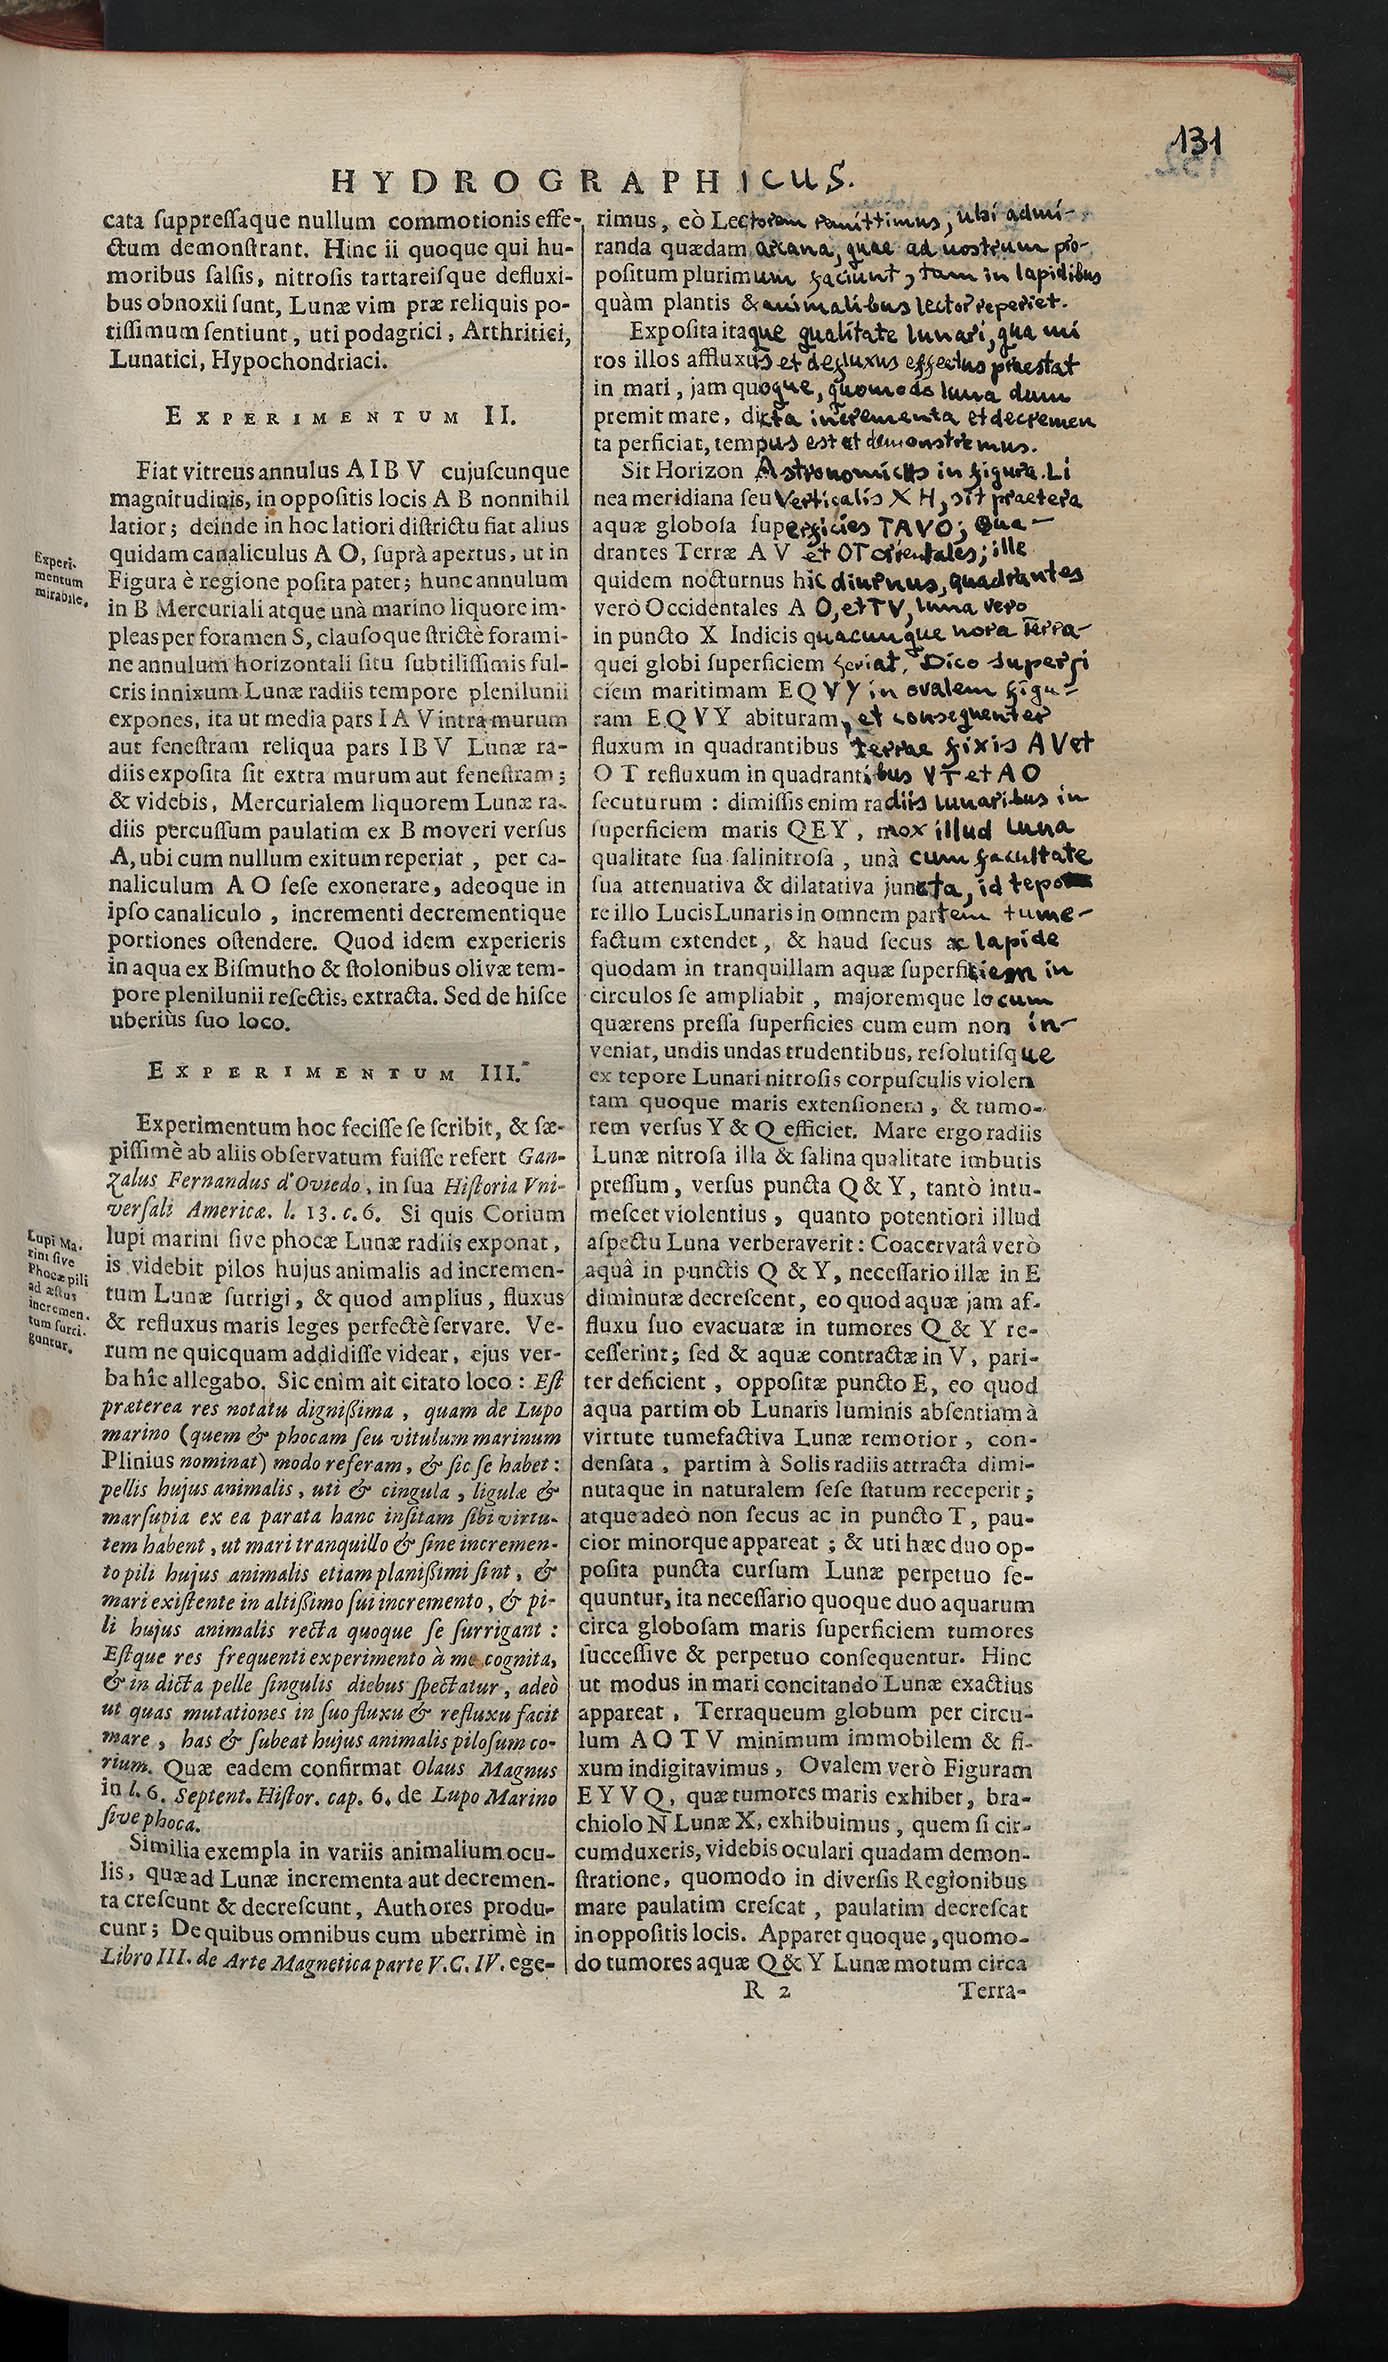 131
HYDROGRAPHICUS.
cata suppressaque nullum commotionis effe-
ctum demonstrant. Hinc ii quoque qui hu-
moribus salsis, nitrosis tartareisque defluxi-
bus obnoxii sunt, Lunæ vim præ reliquis po-
tissimum sentiunt, uti podagrici, Arthritici,
Lunatici, Hypochondriaci.
EXPERIMENTUM II.
Fiat vitreus annulus A I B V cujuscunque
magnitudinis, in oppositis locis A B nonnihil
latior; deinde in hoc latiori districtu fiat alius
quidam canaliculus A O, suprà apertus, ut in
Figura è regione posita patet; hunc annulum
in B Mercuriali atque unà marino liquore im-
pleas per foramen S, clausoque strictè forami-
ne annulum horizontali situ subtilissimis ful-
cris innixum Lunæ radiis tempore plenilunii
expones, ita ut media pars I A V intra murum
aut fenestram reliqua pars I B V Lunæ ra-
diis exposita sit extra murum aut fenestram;
& videbis, Mercurialem liquorem Lunæ ra-
diis percussum paulatim ex B moveri versus
A, ubi cum nullum exitum reperiat, per ca-
naliculum A O sese exonerare, adeoque in
ipso canaliculo, incrementi decrementique
portiones ostendere. Quod idem experieris
in aqua ex Bismutho & stolonibus olivæ tem-
pore plenilunii resectis, extracta. Sed de hisce
uberiùs suo loco.
Experi-
mentum
mirabile.
EXPERIMENTUM III.
Experimentum hoc fecisse se scribit, & sæ-
pissimè ab aliis observatum fuisse refert Gan-
zalus Fernandus d'Oviedo, in sua Historia Vni-
versali Americæ. l. 13. c. 6. Si quis Corium
lupi marini sive phocæ Lunæ radiis exponat,
is videbit pilos hujus animalis ad incremen-
tum Lunæ surrigi, & quod amplius, fluxus
& refluxus maris leges perfectè servare. Ve-
rum ne quicquam addidisse videar, ejus ver-
ba hîc allegabo. Sic enim ait citato loco: Est
præterea res notatu dignissima, quam de Lupo
marino (quem & phocam seu vitulum marinum
Plinius nominat) modo referam, & sic se habet:
pellis hujus animalis, uti & cingula, ligulæ &
marsupia ex ea parata hanc insitam sibi virtu-
tem habent, ut mari tranquillo & sine incremen-
to pili hujus animalis etiam planissimi sint, &
mari existente in altissimo sui incremento, & pi-
li hujus animalis recta quoque se surrigant:
Estque res frequenti experimento à me cognita,
& in dicta pelle singulis diebus spectatur, adeò
ut quas mutationes in suo fluxu & refluxu facit
mare, has & subeat hujus animalis pilosum co-
rium. Quæ eadem confirmat Olaus Magnus
in l. 6. Septent. Histor. cap. 6. de Lupo Marino
sive phoca.
Similia exempla in variis animalium ocu-
lis, quæ ad Lunæ incrementa aut decremen-
ta crescunt & decrescunt, Authores produ-
cunt; De quibus omnibus cum uberrimè in
Libro III. de Arte Magnetica parte V. C. IV. ege-
Lupi Ma-
rini sive
Phocæ pili
ad æstus
incremen-
tum surri-
guntur.
rimus, eò Lectorem remittimus, ubi admi-
randa quædam arcana, quae ad nostrum pro-
positum plurimum faciunt, tam in lapidibus
quàm plantis & animalibus lector reperiet.
Exposita itaque qualitate lunari, qua mi
ros illos affluxus et defluxus effectus praestat
in mari, jam quoque, quomodo luna dum
premit mare, dicta incrementa et decremen
ta perficiat, tempus est ut demonstremus.
Sit Horizon Astronomicus in figura. Li
nea meridiana seu Verticalis X H, sit praetera
aquæ globosa superficies TAVO; Qua-
drantes Terræ A V et OT orientales; ille
quidem nocturnus hic diurnus, quadrantes
verò Occidentales A O, et TV, luna vero
in puncto X Indicis quacunque hora Terra-
quei globi superficiem feriat, Dico superfi
ciem maritimam E Q V Y in ovalem figu-
ram E Q V Y abituram, et consequenter
fluxum in quadrantibus terrae fixis A V et
O T refluxum in quadrantibus VT et AO
secuturum: dimissis enim radiis lunaribus in
superficiem maris QEY, mox illud luna
qualitate sua salinitrosa, unà cum facultate
sua attenuativa & dilatativa juncta, id tepo
re illo Lucis Lunaris in omnem partem tume-
factum extendet, & haud secus ac lapide
quodam in tranquillam aquæ superficiem in
circulos se ampliabit, majoremque locum
quærens pressa superficies cum eum non in-
veniat, undis undas trudentibus, resolutisque
ex tepore Lunari nitrosis corpusculis violen
tam quoque maris extensionem, & tumo-
rem versus Y & Q efficiet. Mare ergo radiis
Lunæ nitrosa illa & salina qualitate imbutis
pressum, versus puncta Q & Y, tantò intu-
mescet violentius, quanto potentiori illud
aspectu Luna verberaverit: Coacervatâ verò
aquâ in punctis Q & Y, necessario illæ in E
diminutæ decrescent, eo quod aquæ jam af-
fluxu suo evacuatæ in tumores Q & Y re-
cesserint; sed & aquæ contractæ in V, pari-
ter deficient, oppositæ puncto E, eo quod
aqua partim ob Lunaris luminis absentiam à
virtute tumefactiva Lunæ remotior, con-
densata, partim à Solis radiis attracta dimi-
nutaque in naturalem sese statum receperit;
atque adeò non secus ac in puncto T, pau-
cior minorque appareat; & uti hæc duo op-
posita puncta cursum Lunæ perpetuo se-
quuntur, ita necessario quoque duo aquarum
circa globosam maris superficiem tumores
successive & perpetuo consequentur. Hinc
ut modus in mari concitando Lunæ exactius
appareat, Terraqueum globum per circu-
lum A O T V minimum immobilem & fi-
xum indigitavimus, Ovalem verò Figuram
E Y V Q, quæ tumores maris exhibet, bra-
chiolo N Lunæ X, exhibuimus, quem si cir-
cumduxeris, videbis oculari quadam demon-
stratione, quomodo in diversis Regionibus
mare paulatim crescat, paulatim decrescat
in oppositis locis. Apparet quoque, quomo-
do tumores aquæ Q & Y Lunæ motum circa
R 2
Terra-